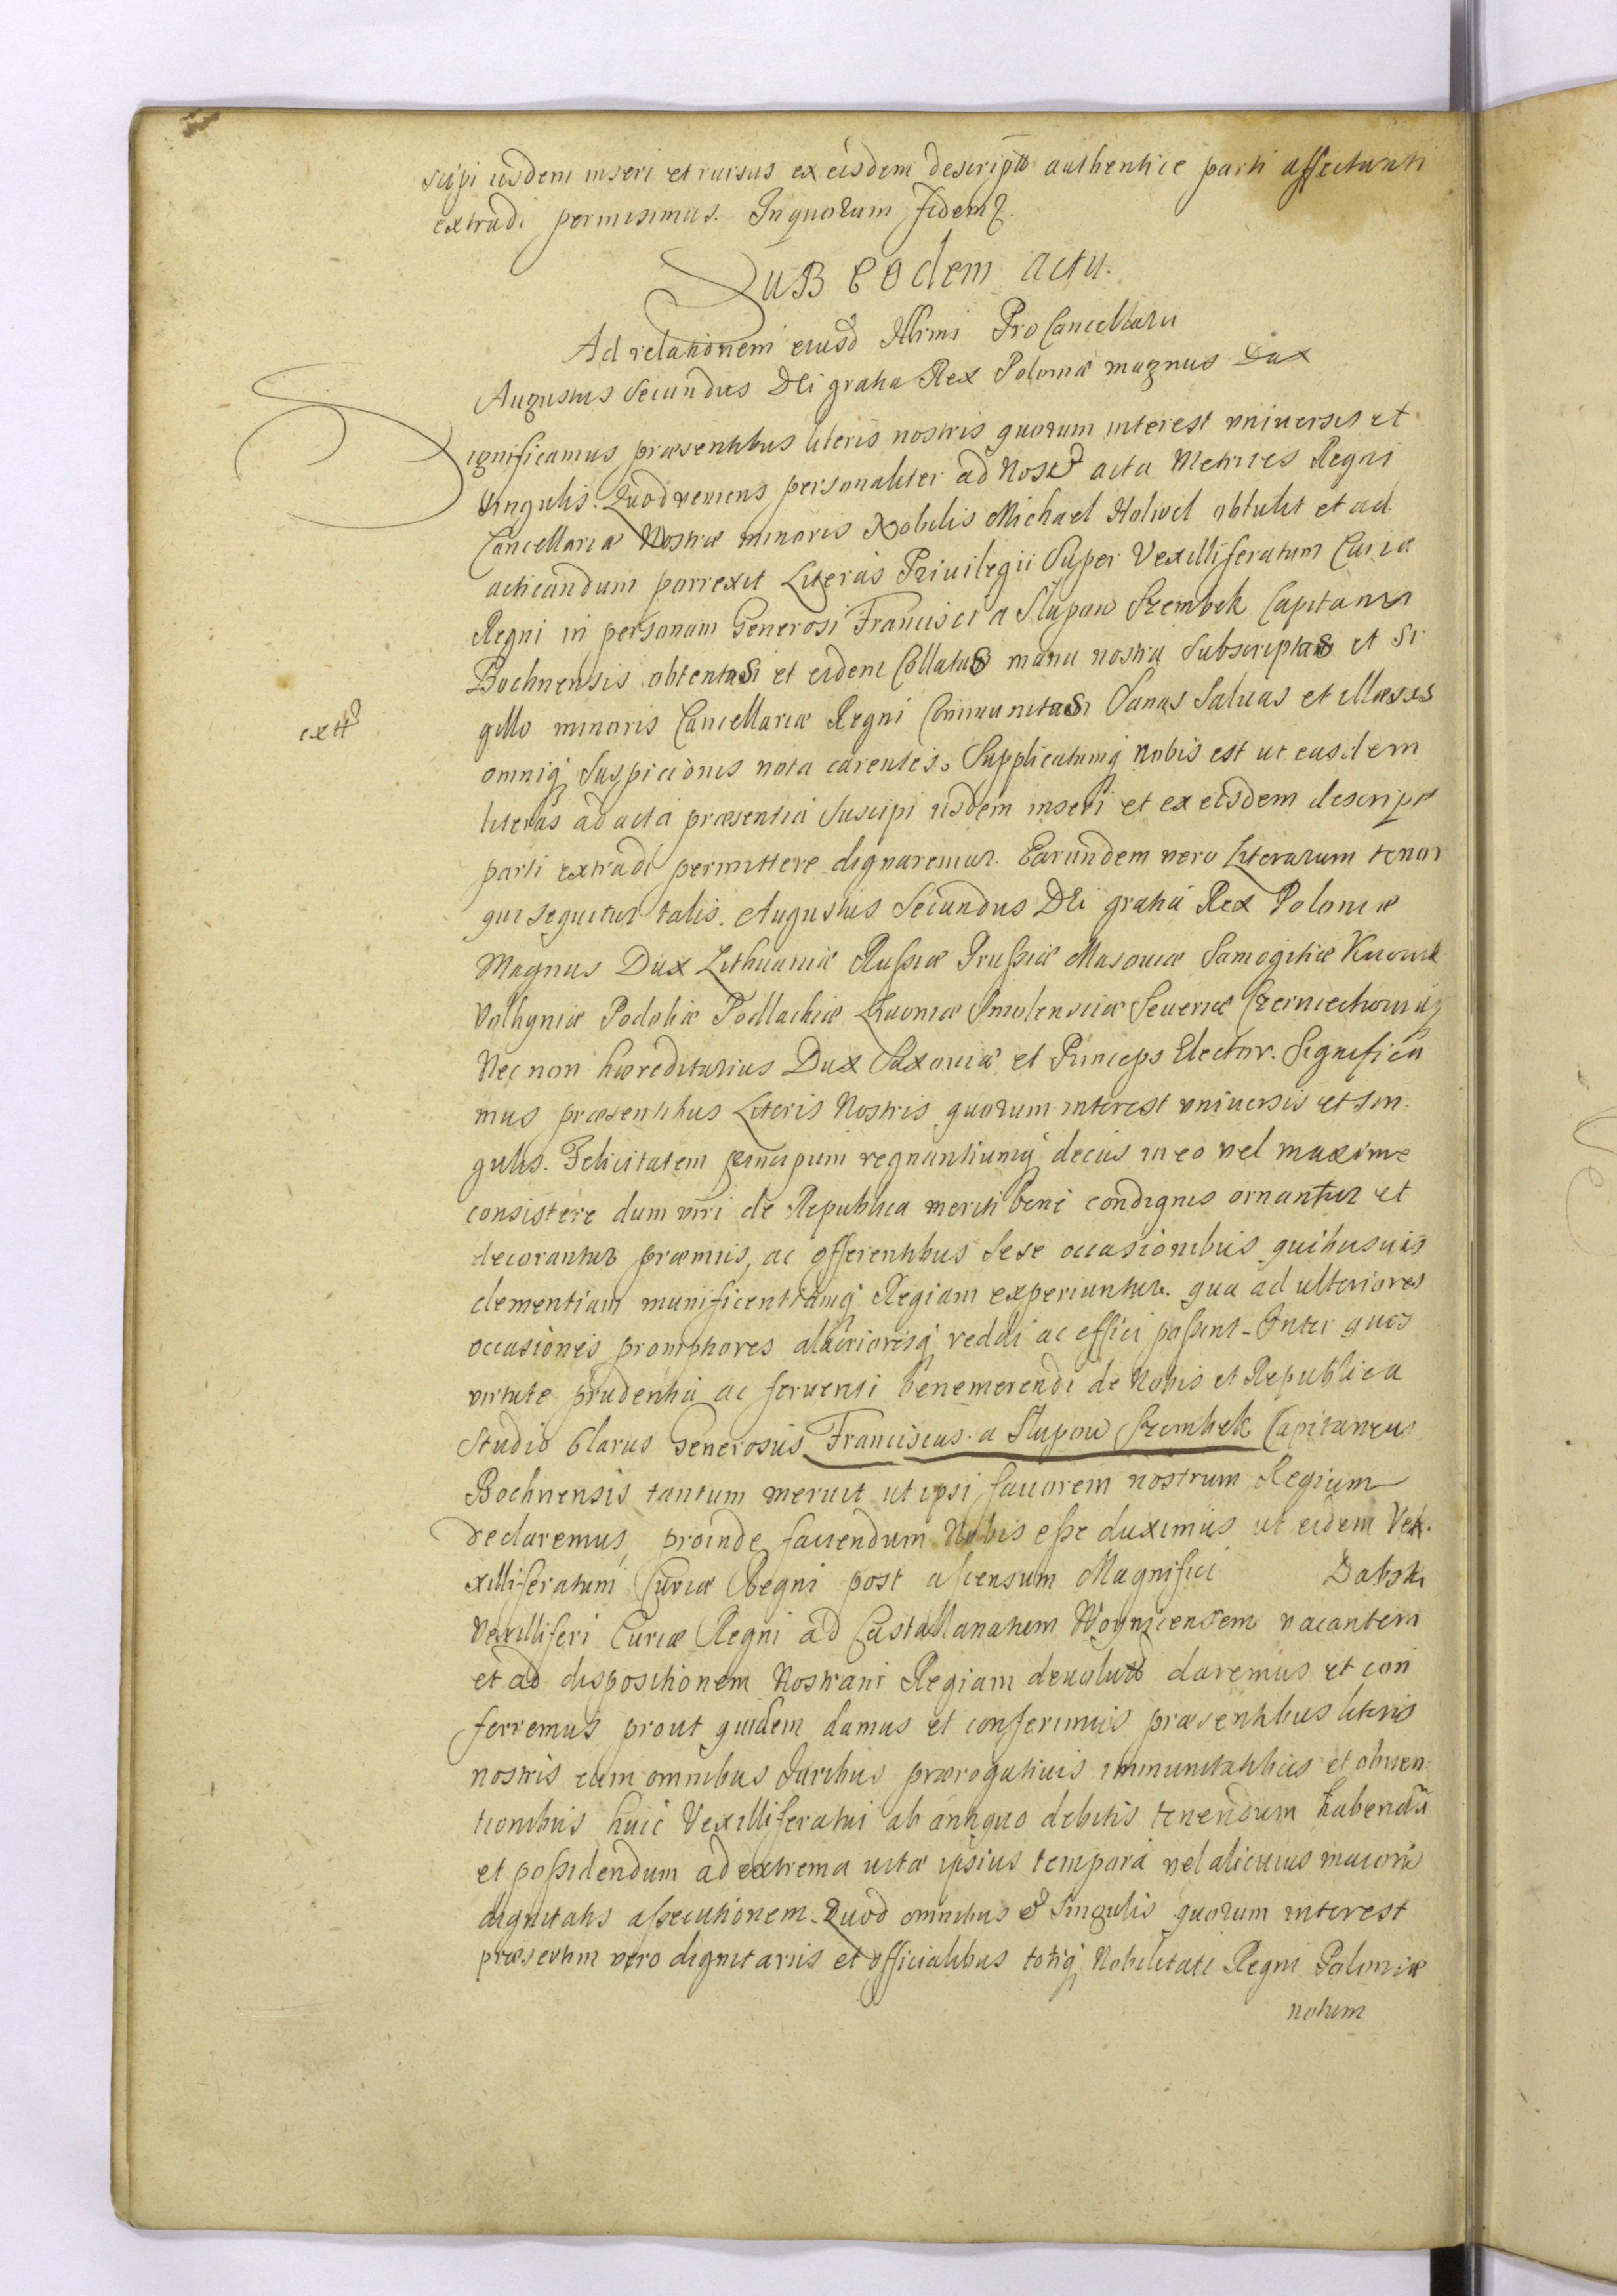 scipi iisdem inseri et rursus ex eisdem descriptas authentice parti affectanti
extradi permisimus. In quorum fidem
Sub eodem actu.
Ad relationem eiusd Illrmi ProCancellarii
Augustus Secundus Dei gratia Rex Poloniæ magnus Dux
Significamus præsentibus literis nostris quorum interest vniuersis et
singulis. Quod veniens personaliter ad Nos et acta Metrices Regni
Cancellariæ Nostræ minoris Nobilis Michael obtulit et ad
acticandum porrexit Literas Priuilegii Super Vexilliferatum Curiæ
Regni in personam Generosi Francisci a Slupow Szembek Capitanei
Bochnensis obtentas et eidem Collatas manu nostra Subscriptas et Si
gillo minoris Cancellariæ Regni Communitas Sanas Saluas et illæsas
extt
omniq Suspicionis nota carentes. Supplicatumq Nobis est ut easdem
literas ad acta præsentia Suscipi iisdem inseri et ex eisdem descript
parti extradi permittere dignaremur. Earundem vero Literarum tenor
qui sequitur talis. Augustus Secundus Dei gratia Rex Poloniæ
Magnus Dux Lithuaniæ Russiæ Prussiæ Masouiæ Samogitiæ Kiiouiæ
Volhyniæ Podoliæ Podlachiæ Liuoniæ Smolensciæ Seueriæ Czerniechouiæq
Nec non hæreditarius Dux Saxoniæ et Princeps Elector. Significa
mus præsentibus Literis Nostris quorum interest vniuersis et sin
gulis. Felicitatem principum regnantiumq decus in eo vel maxime
consistere dum viri de Republica meriti bene condignis ornantur et
decorantur præmiis, ac offerentibus Sese occasionibus quibusuis
clementiam munificentiamq Regiam experiuntur. qua ad ulteriores
occasiones promptiores alacrioresq reddi ac effici possint. Inter quos
virtute prudentia ac feruenti benemerendi de Nobis et Republica
Studio Clarus Generosus Franciscus a Slupow Szembek Capitaneus
Bochnensis tantum meruit ut ipsi fauorem nostrum Regium
declaremus, proinde faciendum Nobis esse duximus ut eidem Vex.
xilliferatum Curiæ Regni post ascensum Magnifici Dabski
Vexilliferi Curiæ Regni ad Castellanatum Woynicensem vacantem
et ad dispositionem Nostram Regiam deuolut daremus et con
ferremus prout quidem damus et conferimus præsentibus literis
nostris cum omnibus Juribus prærogatiuis immunitatibus et obuen
tionibus huic Vexilliferatui ab antiquo debitis tenendum habendū
et possidendum ad extrema uitæ ipsius tempora vel alicuius maioris
dignitatis assecutionem. Quod omnibus et Singulis quorum interest
præsertim vero dignitariis et officialibus totiq Nobilitati Regni Poloniæ
notum